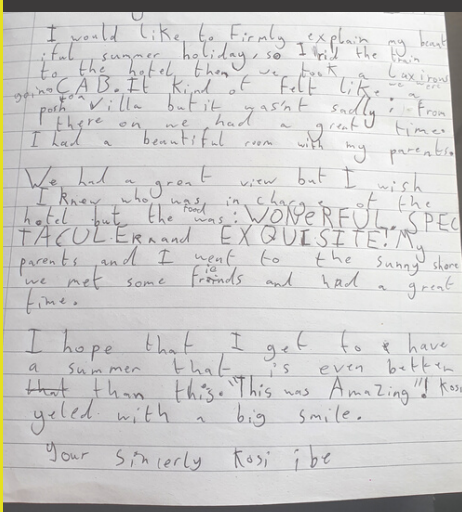 I would like to firmly explain my beaut
iful summer holiday, so I rid the train
to the hotel then we took a Laxirows
CAB. It kind of felt like we were
going to a
posh villa but it wasn't sadly; from
there on we had a great time.
I had a beautiful room with my parents.
We had a great view but I wish
I knew who was in charge of the
hotel but the food was: WONDERFUL, SPEC
TACULER and EXQUISITE! My
parents and I went to the sunny shore
we met some freinds and had a great
time.
I hope that I get to have
a summer that is even better
that than this. "This was Amazing"! Kosi
yeled with a big smile.
Your sincerly Kosi ibe